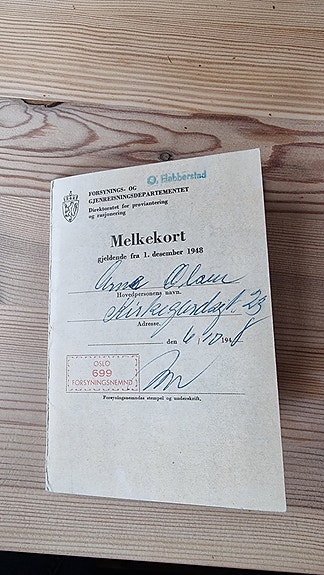 O. Flabberstad
FORSYNINGS- OG
GJENREISNINGSDEPARTEMENTET
Direktoratet for proviantering
og rasjonering
Melkekort
gjeldende fra 1. desember 1948
Arne Olam
Hovedpersonens navn.
23
Adresse.
den 6/10 1948
OSLO
699
FORSYNINGSNEMND
Forsyningsnemndas stempel og underskrift.